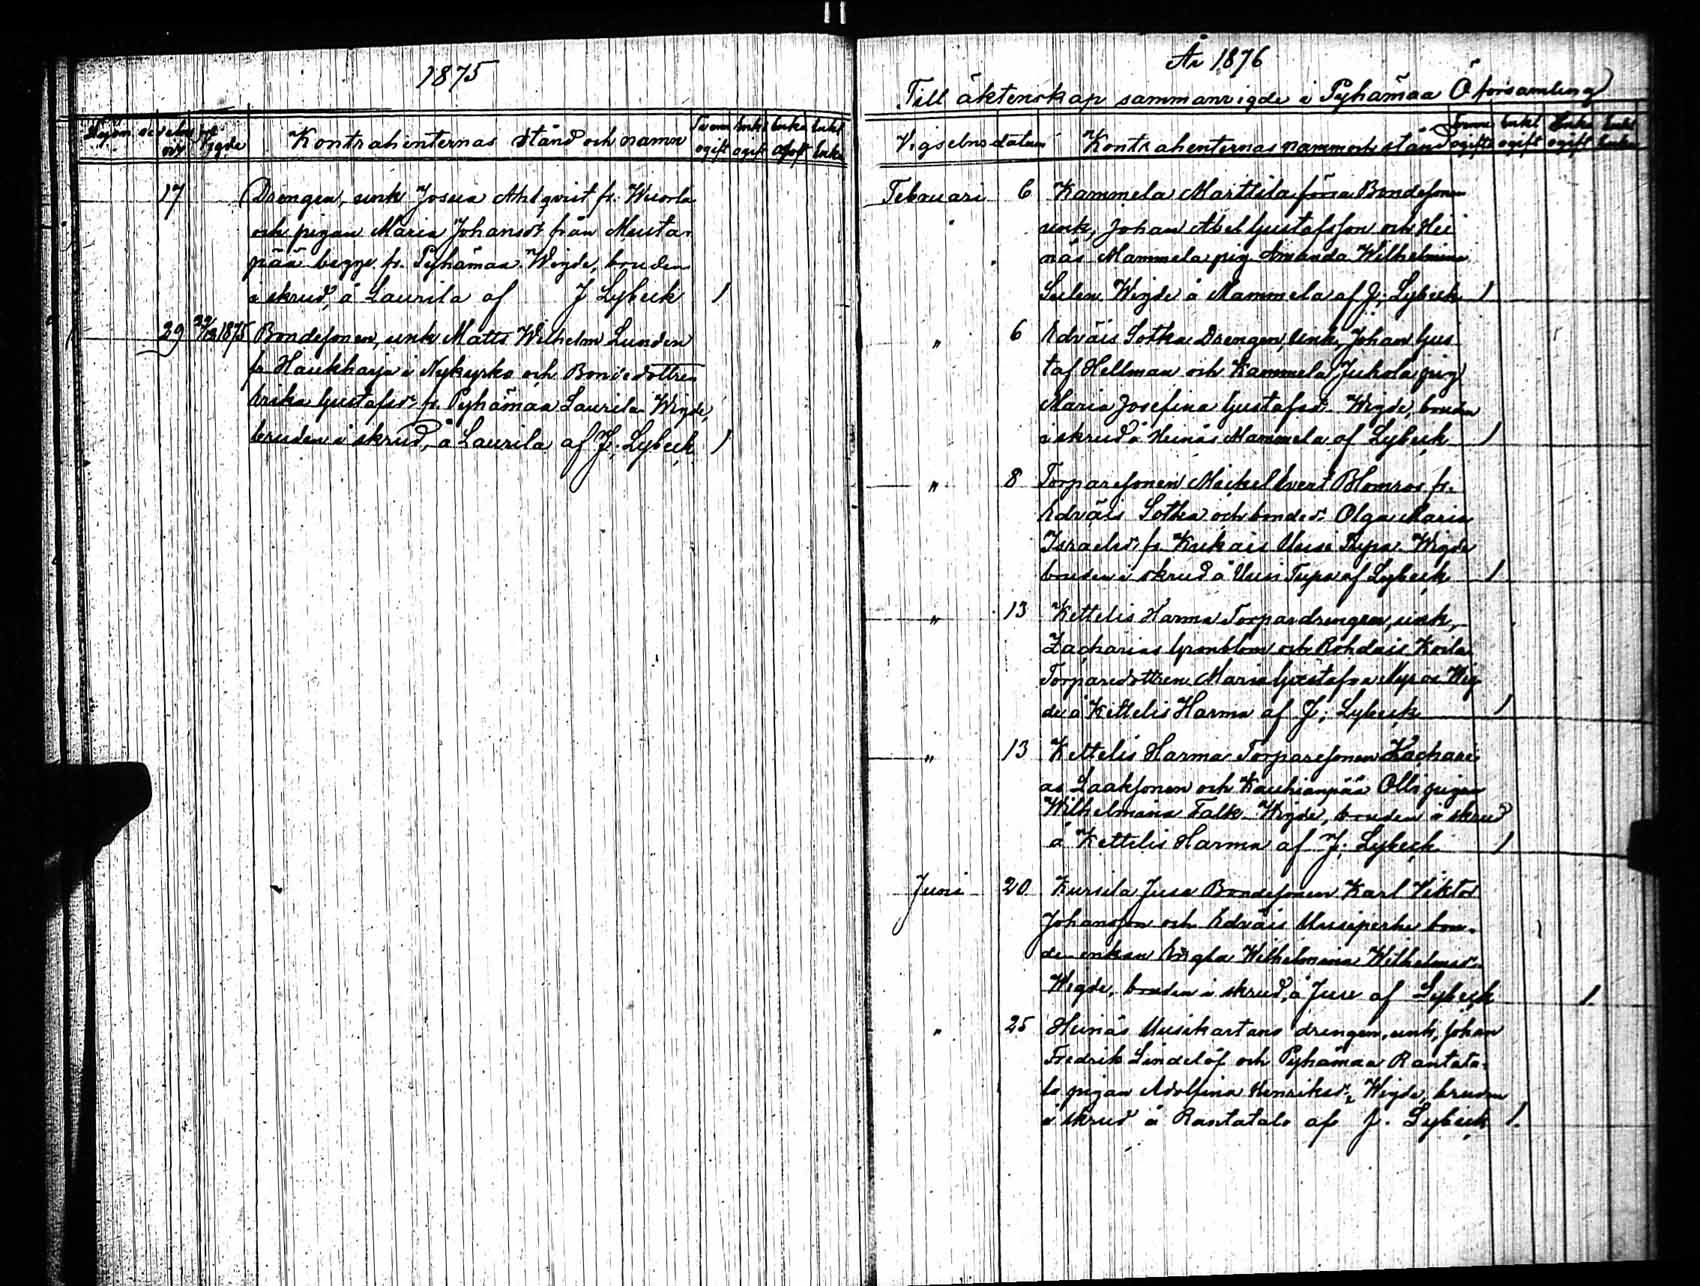 1875
Kontrahenternas stånd och namn
17 Drengen, unk Josua Ahlqvist fr. Wuorla
och pigan Maria Johansdr från Musta-
pää begge fr. Pyhämaa. Wigde, bruden
i skrud, å Laurila af J Lybeck 1
29 1875 Bondesonen, unk Matts Wilhelm Lunden
fr Haukkarja i Nykyrko och Bondedottren
Erika Gustafsdr fr. Pyhämaa Laurila Wigde,
bruden i skrud, å Laurila af J. Lybeck 1
År 1876
Till äktenskap sammanvigde i Pyhämaa Ö församling
Vigselns datum Kontrahenternas namn och stånd
Februari 6 Kammela Marttila Bondesonen
unk, Johan Abel Gustafsson och Hei
näs Mammela pig Amanda Wilhelmina
Wigde å Mammela af J. Lybeck 1
" 6 Edväis Sotka Drengen, Unk, Johan Gus
taf Hellman och Kammela Juhola pig
Maria Josefina Gustafsdr. Wigde, bruden
i skrud å Heinäs Mammela af Lybeck 1
" 8 Torparesonen Mickel Evert Blomros fr.
Edväis Sotka och bonded. Olga Maria
Israelsdr. fr Kukais Uusi Tupa. Wigde
bruden i skrud å Uusi Tupa af Lybeck 1
" 13 Kettelis Harma Torpardrengen, unk,
Zacharias Grönblom och Rohdais Koila
Torparedottren Maria Gustafva Wig
de å Kettelis Harma af J. Lybeck 1
" 13 Kettelis Harma Torparesonen Zachari
as Laaksonen och Kauhianpää Olli pigan
Wilhelmina Falk. Wigde, bruden i skrud
å Kettelis Harma af J. Lybeck 1
Juni 20 Kursila Juse Bondesonen Karl Viktor
Johansson och Edväis Uusiperhe bon-
de enkan Wilhelmina Wilhelmsdr.
Wigde, bruden i skrud, å Juse af Lybeck 1.
" 25 Heinäs Uusikartano drengen, unk, Johan
Fredrik Lindelöf och Pyhämaa Rantata-
lo pigan Adolfina Henriksdr. Wigde, bruden
i skrud å Rantatalo af J. Lybeck 1.